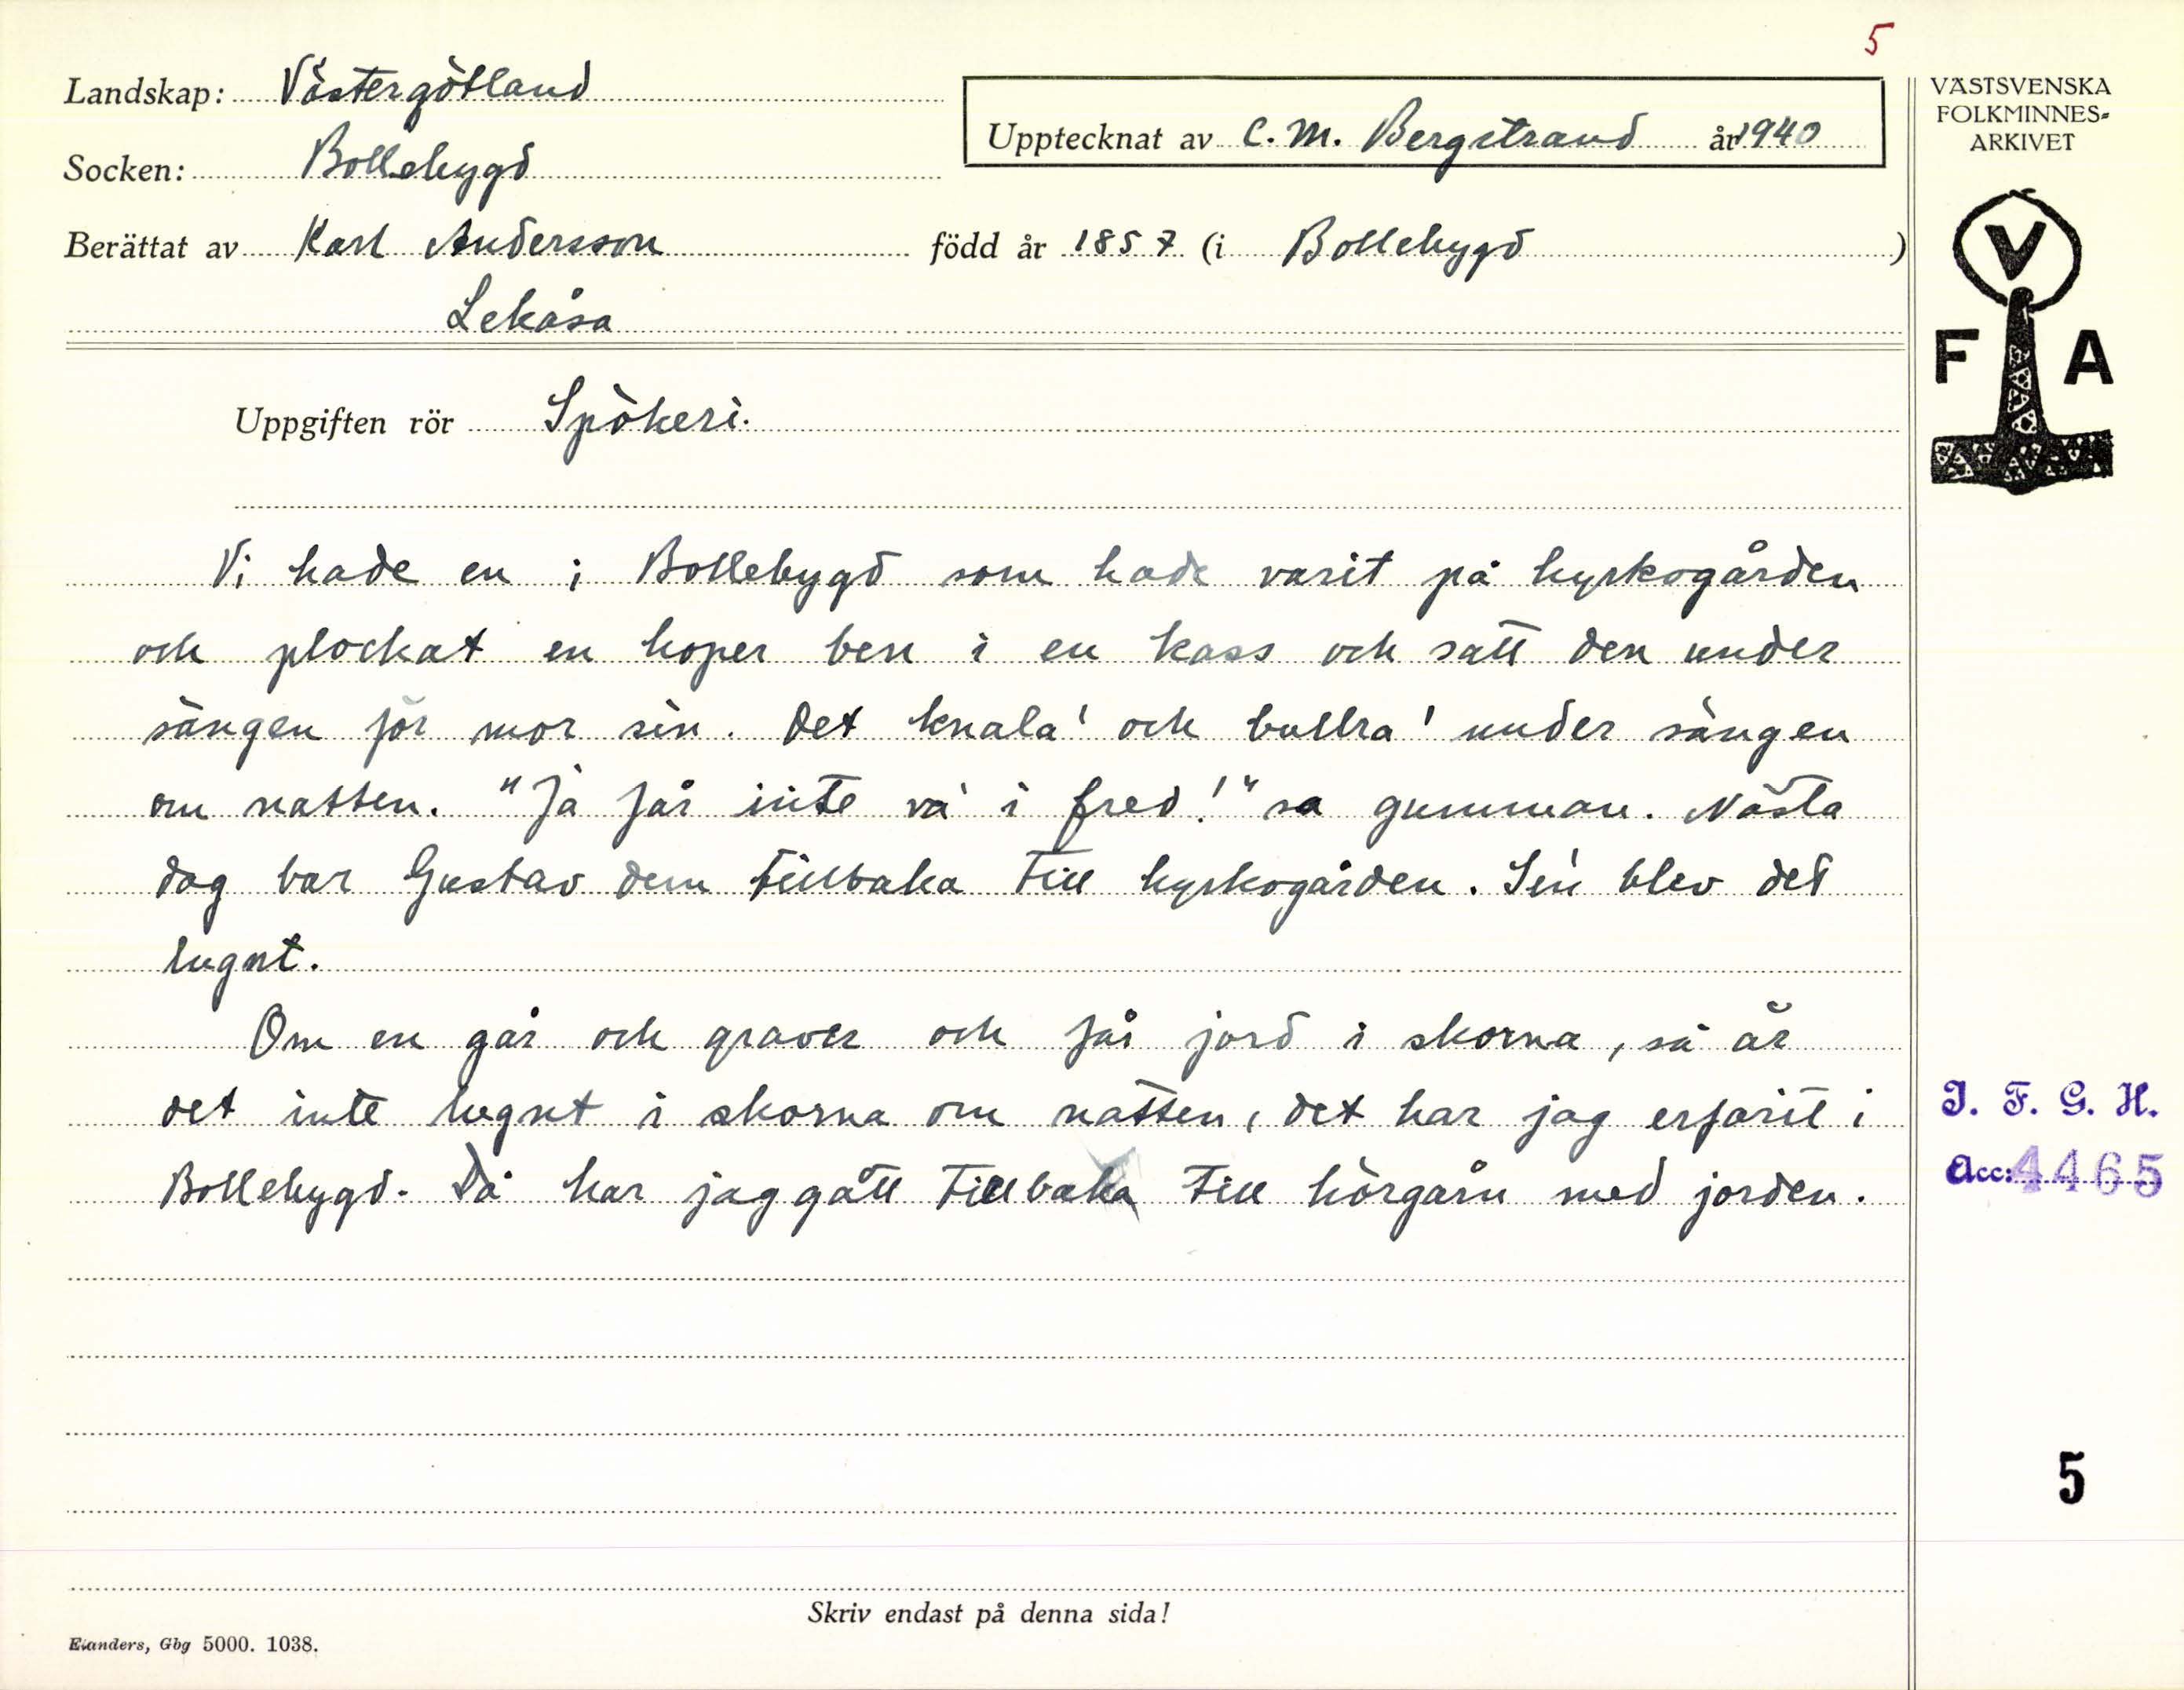 5
Landskap: Västergötland
Upptecknat av C. M. Bergstrand år 1940
Socken: Bollebygd
Berättat av Karl Andersson född år 1857 (i Bollebygd )
Lekåsa
Uppgiften rör Spökeri.
Vi hade en i Bollebygd som hade varit på kyrkogården
och plockat en hoper ben i en kass och satt den under
sängen för mor sin. Det knala' och bullra' under sängen
om natten. "Ja får inte va i fred!" sa gumman. Nästa
dag bar Gustav dem tillbaka till kyrkogården. Sin blev det
lugnt.
Om en går och graver och får jord i skorna, så är
det inte lugnt i skorna om natten, det har jag erfarit i
Bollebygd. Då har jag gått tillbaka till körgårn med jorden.
Skriv endast på denna sida!
Elanders, Gbg 5000. 1038.
VÄSTSVENSKA
FOLKMINNES-
ARKIVET
V
F A
I. F. G. H.
Acc: 4465
5